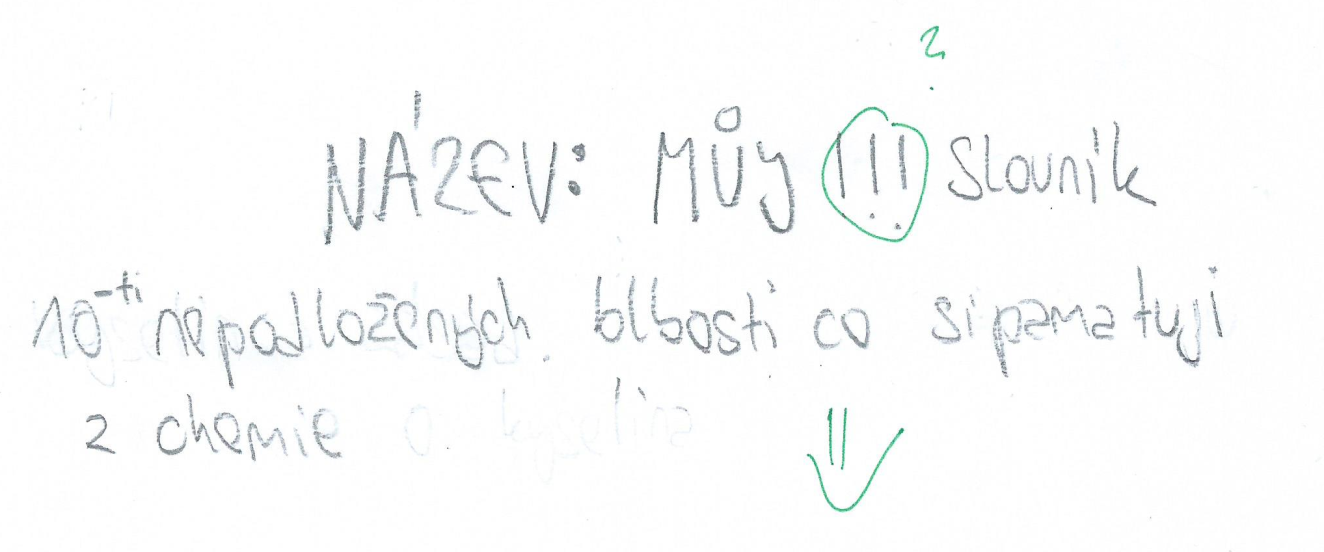 ?
NÁZEV: MŮJ !!! Slovník
10-ti nepodložených blbostí co si pamatuji
z chemie o kyselina